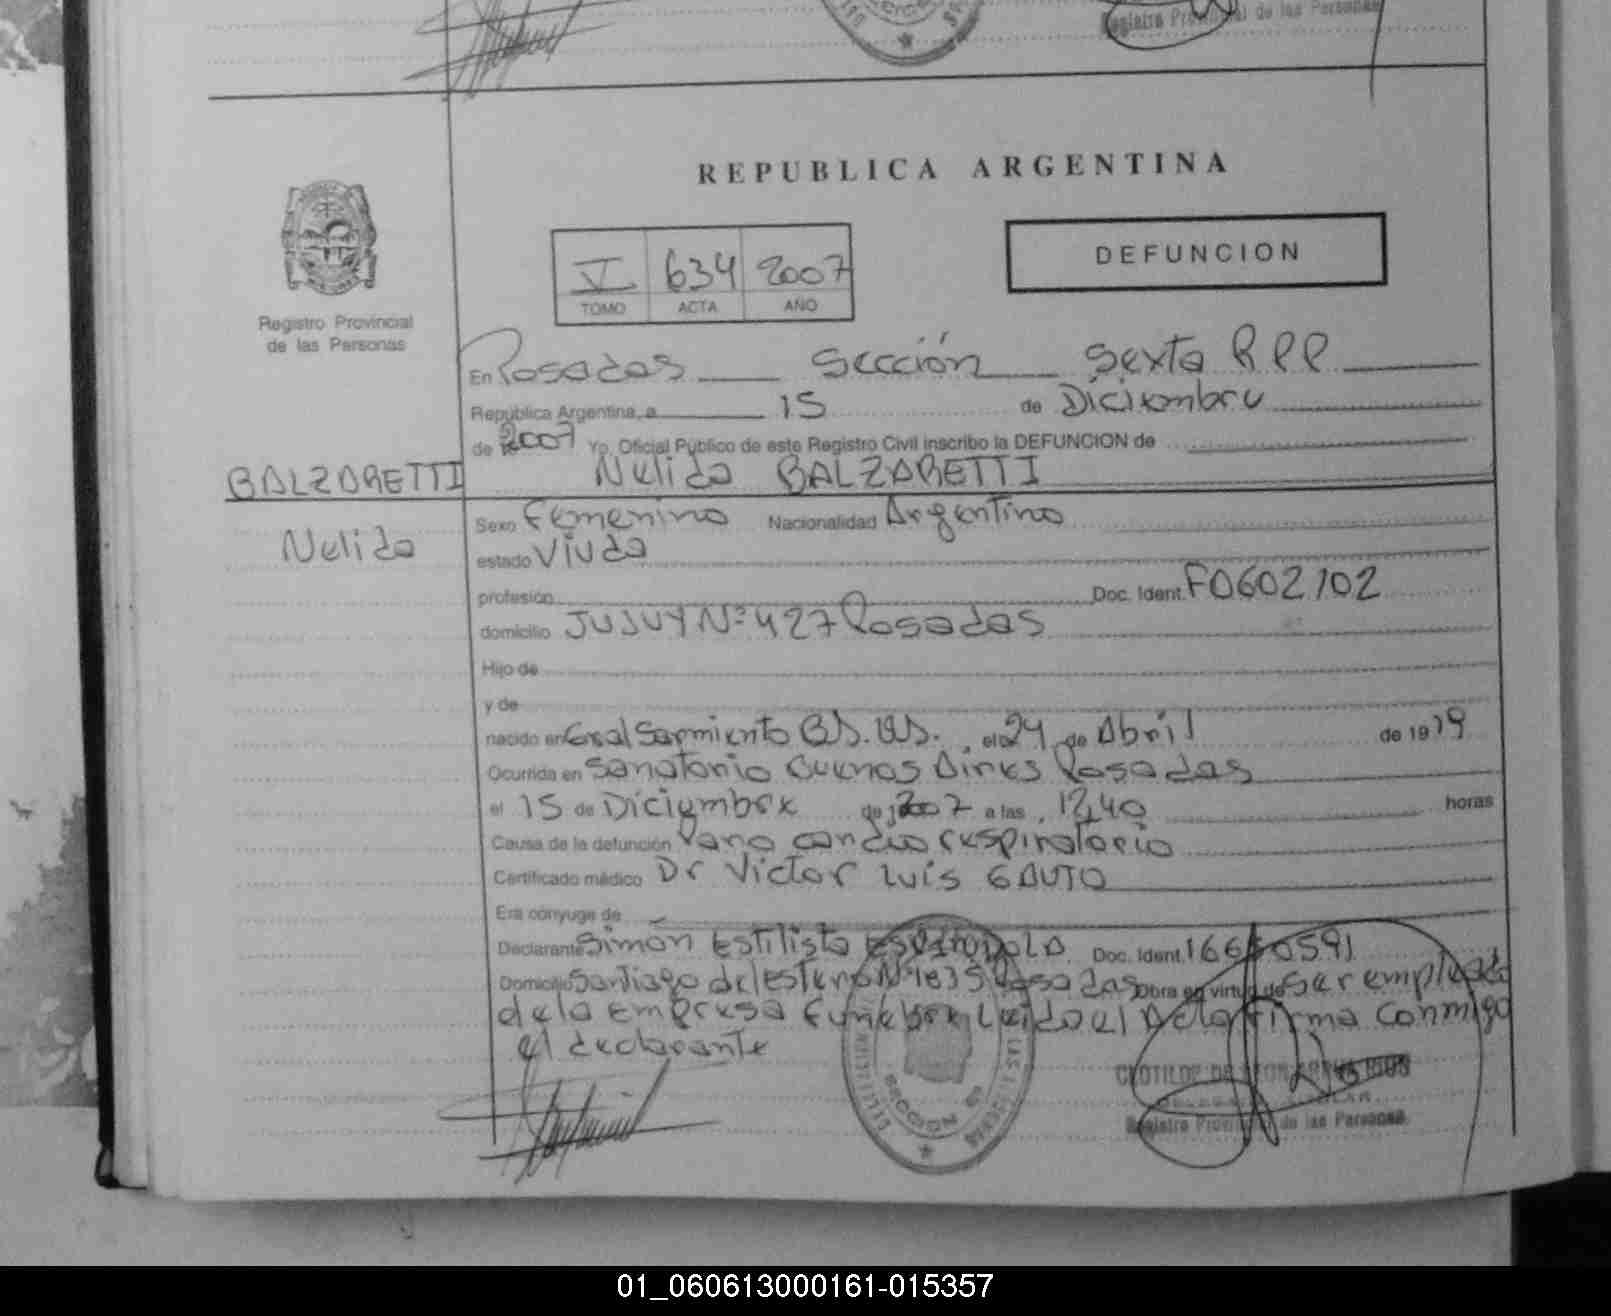 Registro Provincial de las Personas
REPUBLICA ARGENTINA
V 634 2007
TOMO ACTA AÑO
DEFUNCION
Registro Provincial
de las Personas
En Posadas Sección Sexta RPP
República Argentina, a 15 de Diciembre
de 2007 Yo, Oficial Público de este Registro Civil inscribo la DEFUNCION de
BALZARETTI Nelida BALZARETTI
Nelida
Sexo Femenino Nacionalidad Argentina
estado Viuda
profesión Doc. Ident. F0602102
domicilio JUJUY Nº 427 Posadas
Hijo de
y de
nacido en Gral Sarmiento BS. AS., el 24 de Abril de 1919
Ocurrida en Sanatorio Buenos Aires Posadas
el 15 de Diciembre de 2007 a las 12,40 horas
Causa de la defunción Paro cardio respiratorio
Certificado médico Dr Victor Luis GAUTO
Era cónyuge de
Declarante Simón Estilisto ESPINDOLA Doc. Ident. 16
Domicilio Santiago del estero Nº 1835 Posadas Obra en virtud de Ser empleado
de la Empresa Funebre, Leido el Acta firma conmigo
el declarante
SECCION
CLOTILDE
Registro Provincial de las Personas
01_060613000161-015357